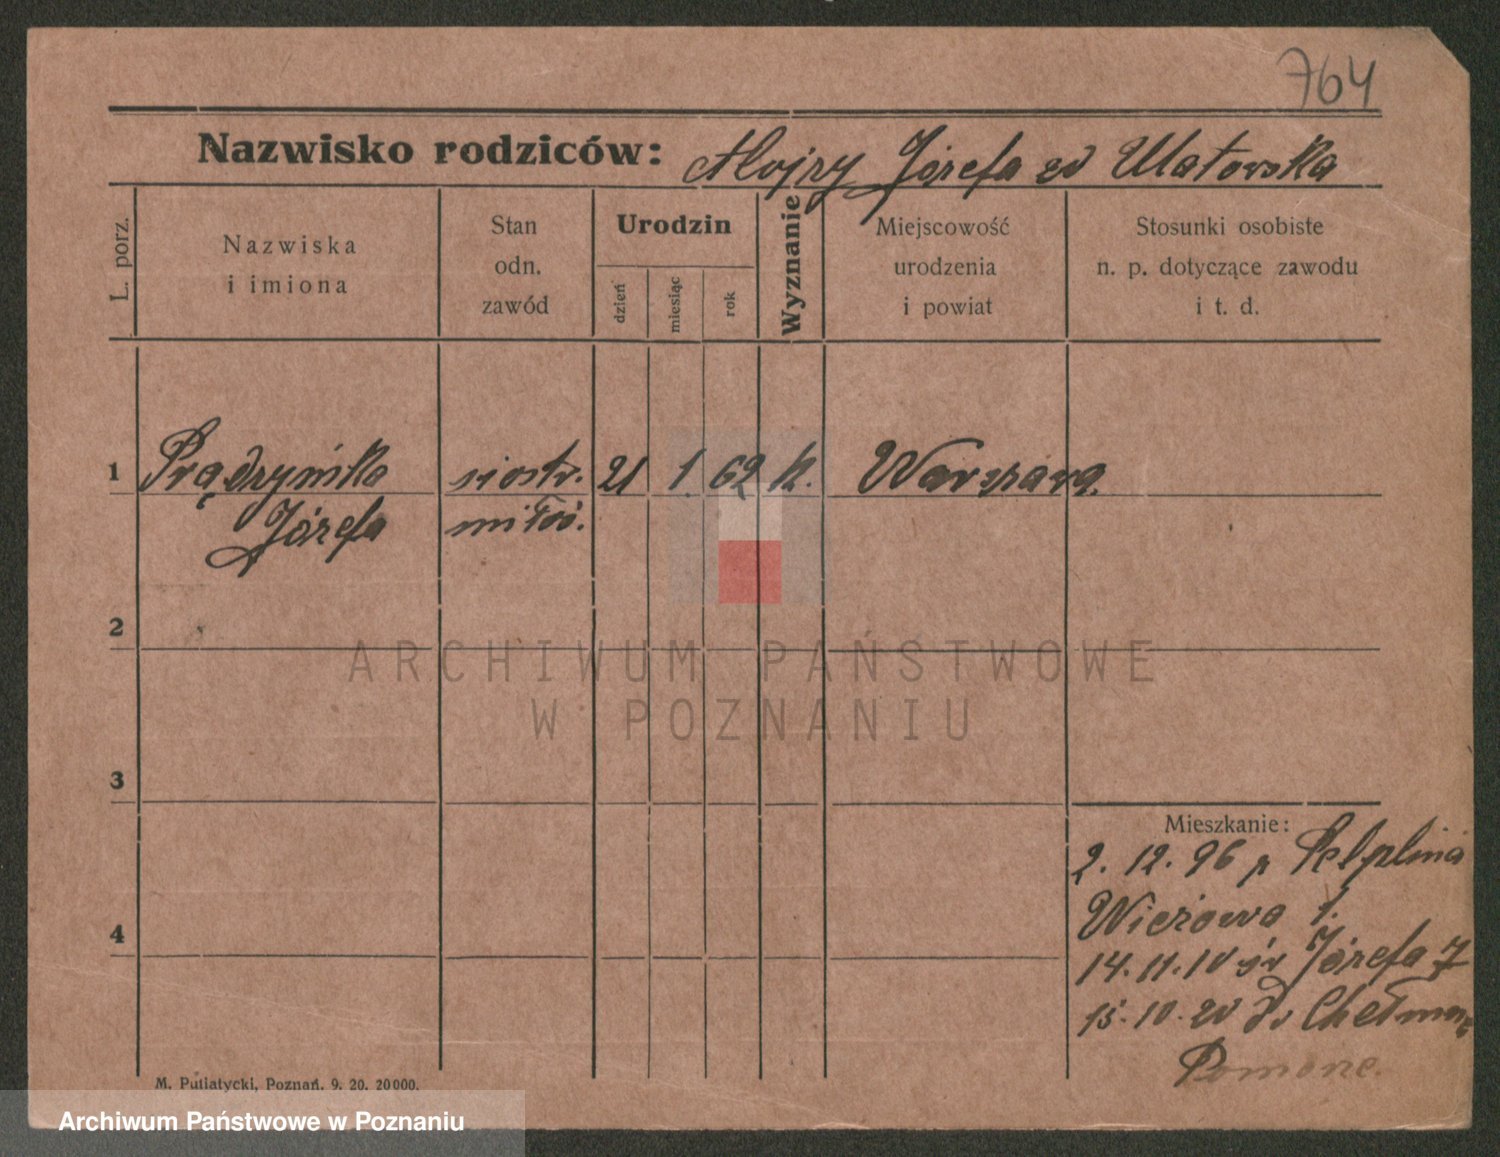 764
Nazwisko rodziców: Alojzy Józefa zd Ulatowska
L. porz.
Nazwiska i imiona
Stan odn. zawód
Urodzin
dzień miesiąc rok
Wyznanie
Miejscowość urodzenia i powiat
Stosunki osobiste n. p. dotyczące zawodu i t. d.
1 Prądzyńska siostr. 21 1. 62 k. Warszawa.
Józefa miłos.
2
3
4
Mieszkanie:
2. 12. 96 p Pelplina
Wieżowa 1.
14. 11. 10 św Józefa 7
15. 10. 20 do Chełmna
Pomorze.
M. Putiatycki, Poznań. 9. 20. 20000.
ARCHIWUM PAŃSTWOWE
W POZNANIU
Archiwum Państwowe w Poznaniu